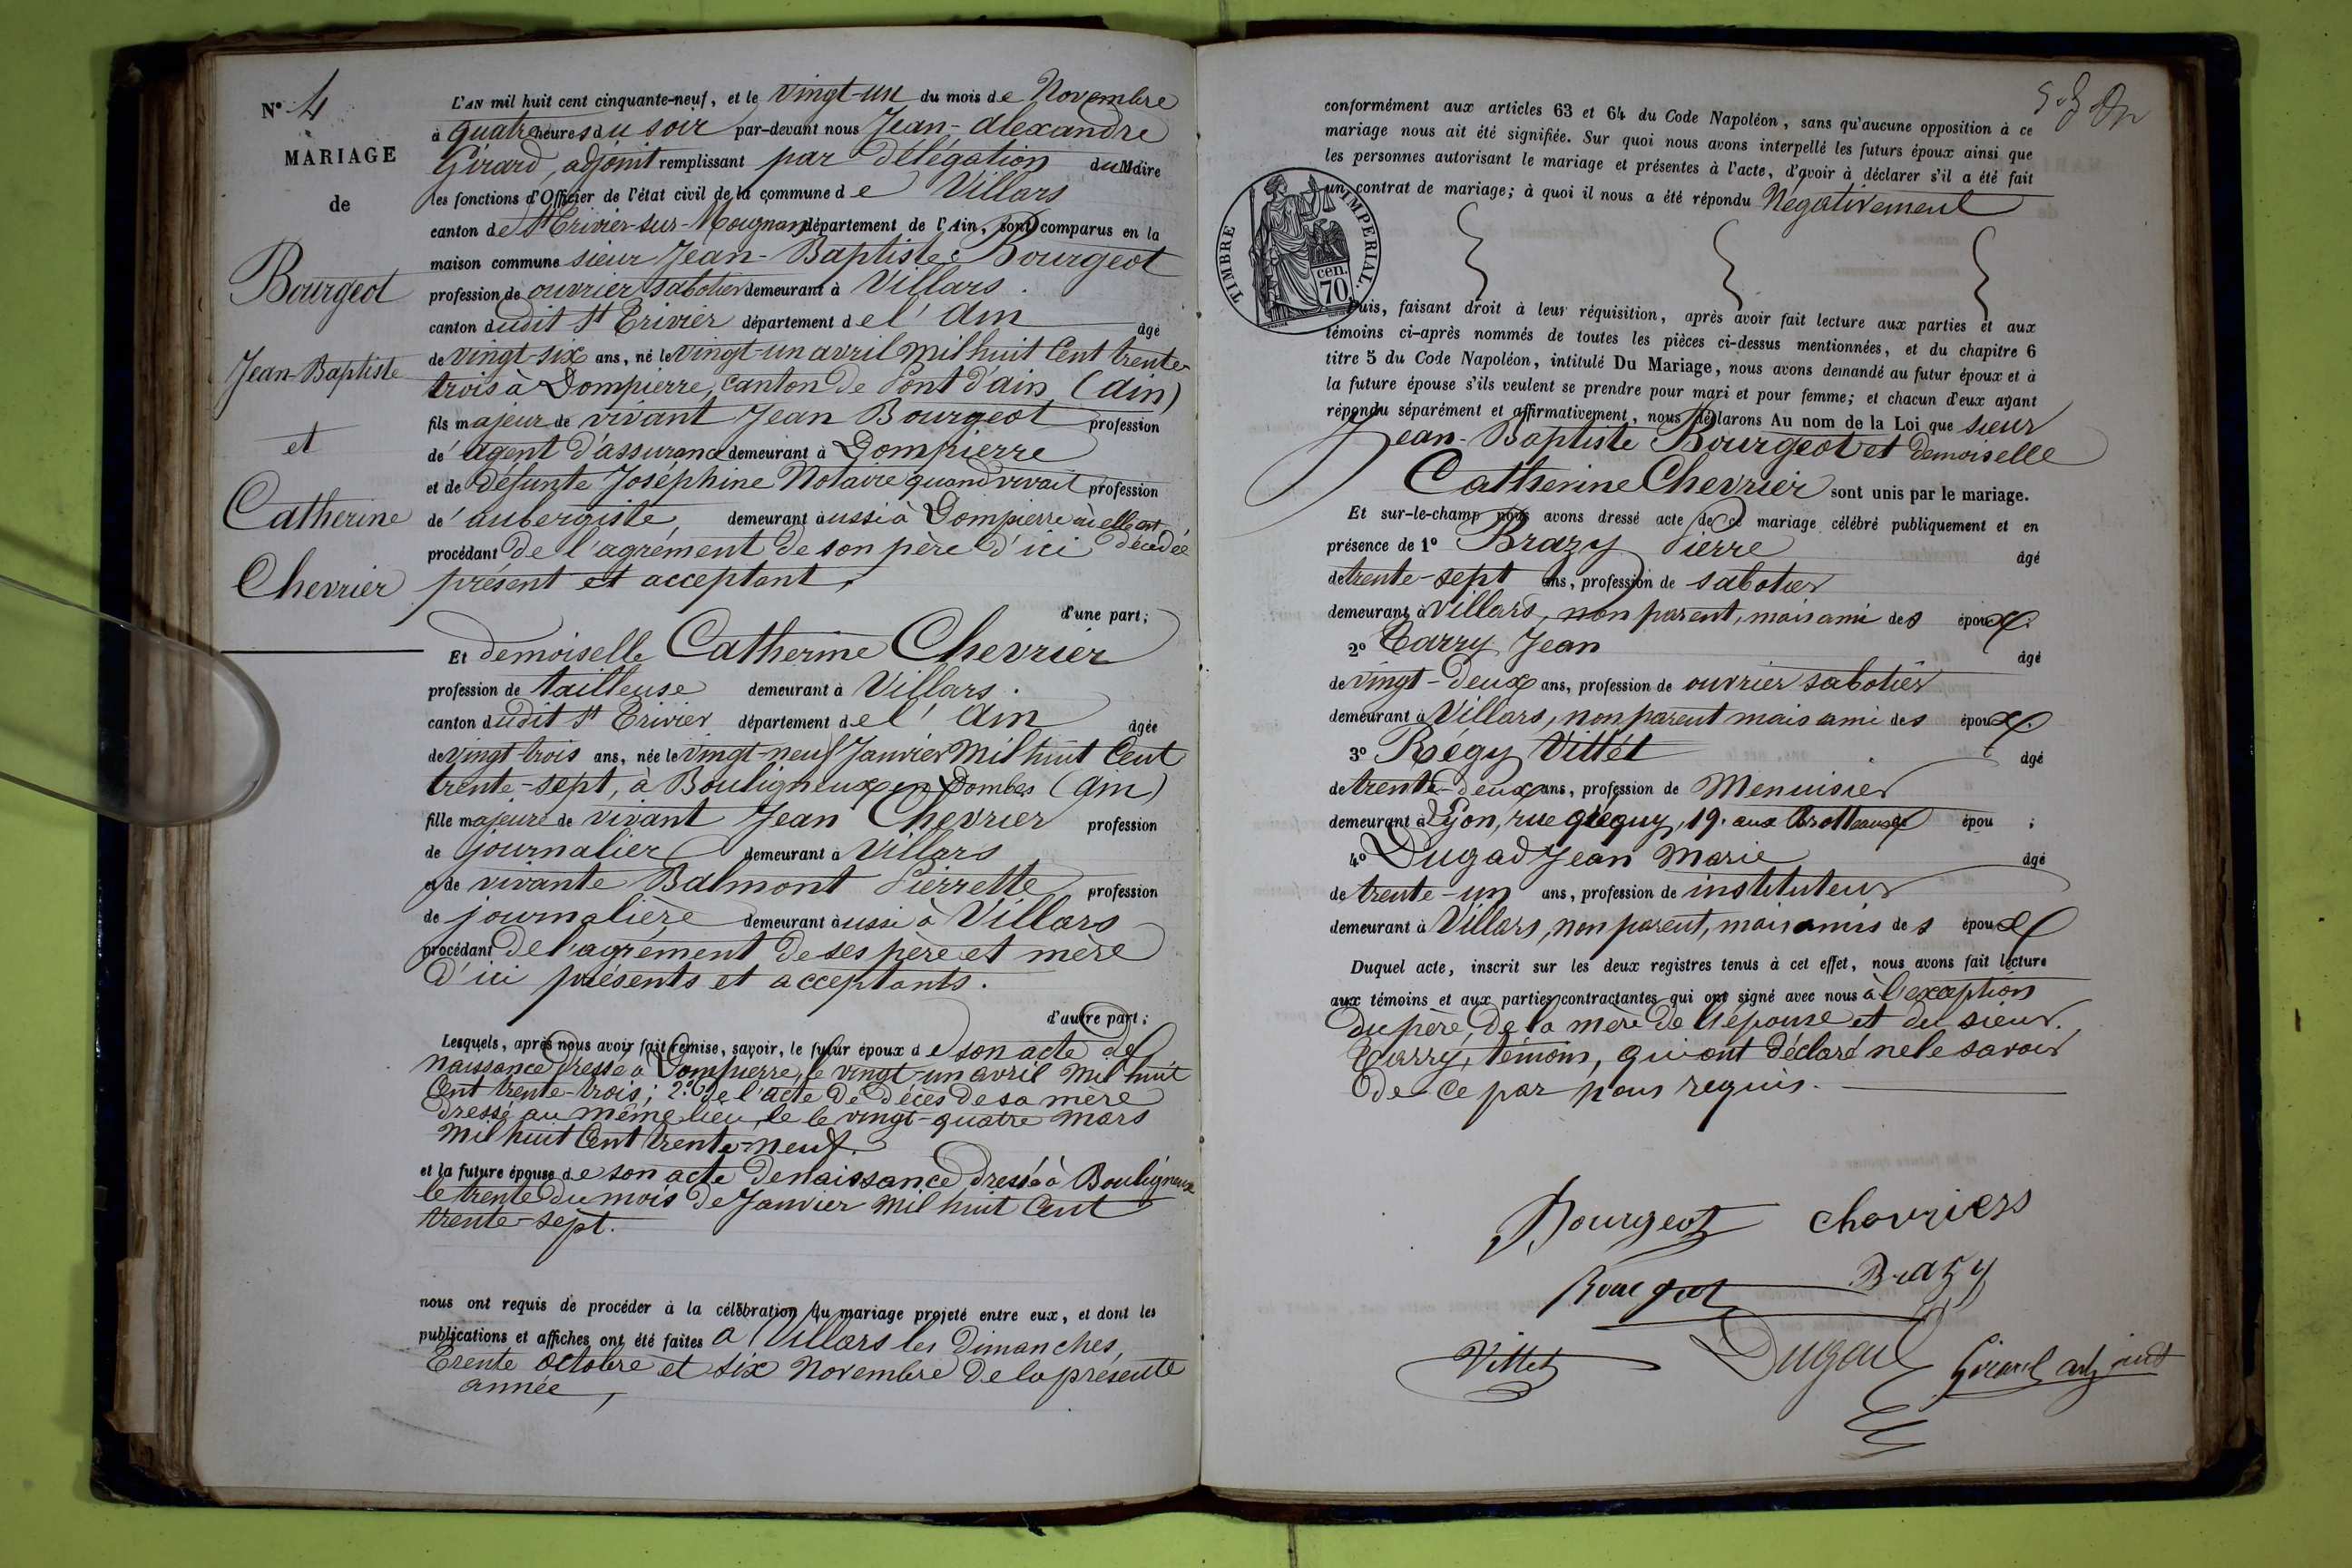 N° 4
MARIAGE
de
Bourgeot
Jean-Baptiste
et
Catherine
Chevrier
L'AN mil huit cent cinquante-neuf, et le vingt-un du mois de Novembre
à quatre heures du soir par-devant nous Jean-Alexandre
Girard, adjoint remplissant par délégation du Maire
les fonctions d'Officier de l'état civil de la commune de Villars
canton de St Trivier-sur-Moignans département de l'Ain, sont comparus en la
maison commune sieur Jean-Baptiste Bourgeot
profession de ouvrier sabotier demeurant à Villars.
canton dudit St Trivier département de l'Ain âgé
de vingt-six ans, né le vingt-un avril mil huit Cent trente
trois à Dompierre, canton de Pont d'ain, (Ain)
fils majeur de vivant Jean Bourgeot profession
de agent d'assurance demeurant à Dompierre
et de défunte Joséphine Notaire quand vivait profession
de aubergiste, demeurant aussi à Dompierre où elle est
procédant de l'agrément de son père d'ici décédée
présent et acceptant,
d'une part;
Et demoiselle Catherine Chevrier
profession de tailleuse demeurant à Villars.
canton dudit St Trivier département de l'Ain âgée
de vingt-trois ans, née le vingt-neuf Janvier Mil huit Cent
trente-sept, à Bouligneux en Dombes (Ain)
fille majeure de vivant Jean Chevrier profession
de journalier demeurant à Villars
et de vivante Balmont Pierrette profession
de journalière demeurant aussi à Villars
procédant de l'agrément de ses père et mère
d'ici présents et acceptants.
d'autre part;
Lesquels, après nous avoir fait remise, savoir, le futur époux de son acte de
naissance dressé à Dompierre, le vingt-un avril mil huit
Cent trente-trois; 2° de l'acte de décès de sa mère
dressé au même lieu, le le vingt-quatre mars
Mil huit Cent trente-neuf.
et la future épouse de son acte de naissance dressé à Bouligneux
le trente du mois de Janvier mil huit Cent
trente-sept.
nous ont requis de procéder à la célébration du mariage projeté entre eux, et dont les
publications et affiches ont été faites à Villars les Dimanches,
Trente Octobre et six Novembre de la présente
année,
conformément aux articles 63 et 64 du Code Napoléon, sans qu'aucune opposition à ce
mariage nous ait été signifiée. Sur quoi nous avons interpellé les futurs époux ainsi que
les personnes autorisant le mariage et présentes à l'acte, d'avoir à déclarer s'il a été fait
un contrat de mariage; à quoi il nous a été répondu Négativement
TIMBRE IMPERIAL.
cen.
70
Puis, faisant droit à leur réquisition, après avoir fait lecture aux parties et aux
témoins ci-après nommés de toutes les pièces ci-dessus mentionnées, et du chapitre 6
titre 5 du Code Napoléon, intitulé Du Mariage, nous avons demandé au futur époux et à
la future épouse s'ils veulent se prendre pour mari et pour femme; et chacun d'eux ayant
répondu séparément et affirmativement, nous déclarons Au nom de la Loi que sieur
Jean-Baptiste Bourgeot et demoiselle
Catherine Chevrier sont unis par le mariage.
Et sur-le-champ nous avons dressé acte de ce mariage célébré publiquement et en
présence de 1° Brazy Pierre âgé
de trente-sept ans, profession de sabotier
demeurant à Villars, non parent, mais ami des époux.
2° Carry Jean âgé
de vingt-deux ans, profession de ouvrier sabotier
demeurant à Villars, non parent mais ami des époux.
3° Régy Vittet âgé
de trente-deux ans, profession de Menuisier
demeurant à Lyon, rue 19. aux Brotteaux époux;
4° Dugad Jean Marie âgé
de trente-un ans, profession de instituteur
demeurant à Villars, non parent, mais amis des époux
Duquel acte, inscrit sur les deux registres tenus à cet effet, nous avons fait lecture
aux témoins et aux parties contractantes qui ont signé avec nous à l'exception
du père, de la mère de l'épouse et du sieur.
Carry, témoin, qui ont déclaré ne le savoir
de ce par nous requis.
Bourgeot chevriers
Bourgeot Brazy
Vittet Dugad Girard adjoint